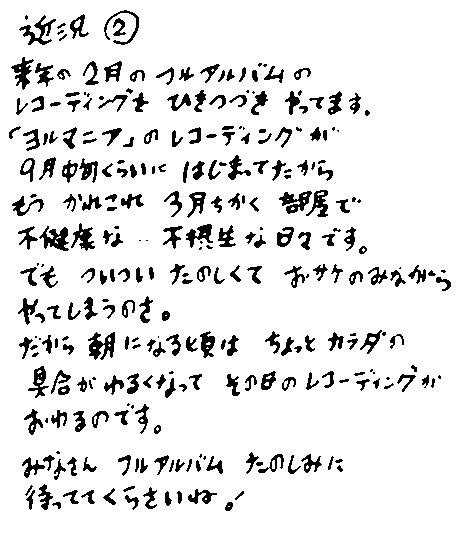 近況②
来年の2月のフルアルバムの
レコーディングを ひきつづき やってます。
「ヨルマニア」のレコーディングが
9月中旬くらいに はじまってたから
もう かれこれ 3月ちかく 部屋で
不健康な‥不摂生な日々です。
でも ついつい たのしくて おサケのみながら
やってしまうのさ。
だから 朝になる頃は ちょっと カラダの
具合がわるくなって その日のレコーディングが
おわるのです。
みなさん フルアルバム たのしみに
待っててくらさいね!